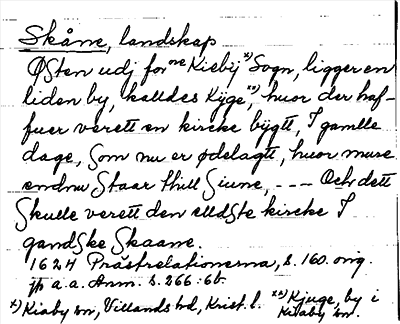 Skåne, landskap
Østen udj for ne Kiebij x) Sogn, ligger en
liden by, kalldes Kijge, xx) huor der haf-
fuer verett en kircke bijgtt, I gamlle
dage, Som nu er ødelagtt, huor mure
endnu Staar thill Siune, --- Och dett
Skulle verett den elldste kircke I
gandske Skaane.
1624 Prästrelationerna, s. 160. orig.
jfr a.a. Anm. s. 266: 66.
x) Kiaby sn, Villands hd, Krist. l. xx) Kjuge, by i
Kiaby sn.